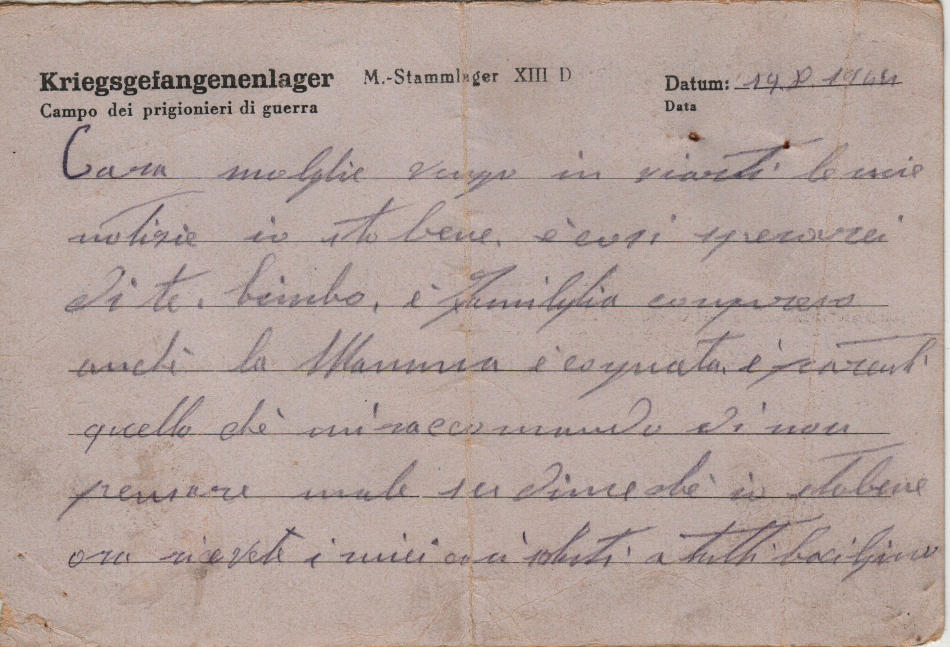 Kriegsgefangenenlager M.-Stammlager XIII D Datum: 14.8.1944
Campo dei prigionieri di guerra Data
Cara molglie vengo in viarti le mie
notizie io sto bene. è cosi sperarei
di te. bimbo. è familglia compreso
anchè la Mamma è cognata. è parenti
quello chè mi raccomando di non
pensare male su di me chè io sto bene
ora ricevete i miei cari saluti a tutti baci